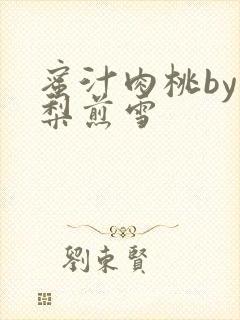 蜜汁肉桃by
梨煎雪
劉東賢